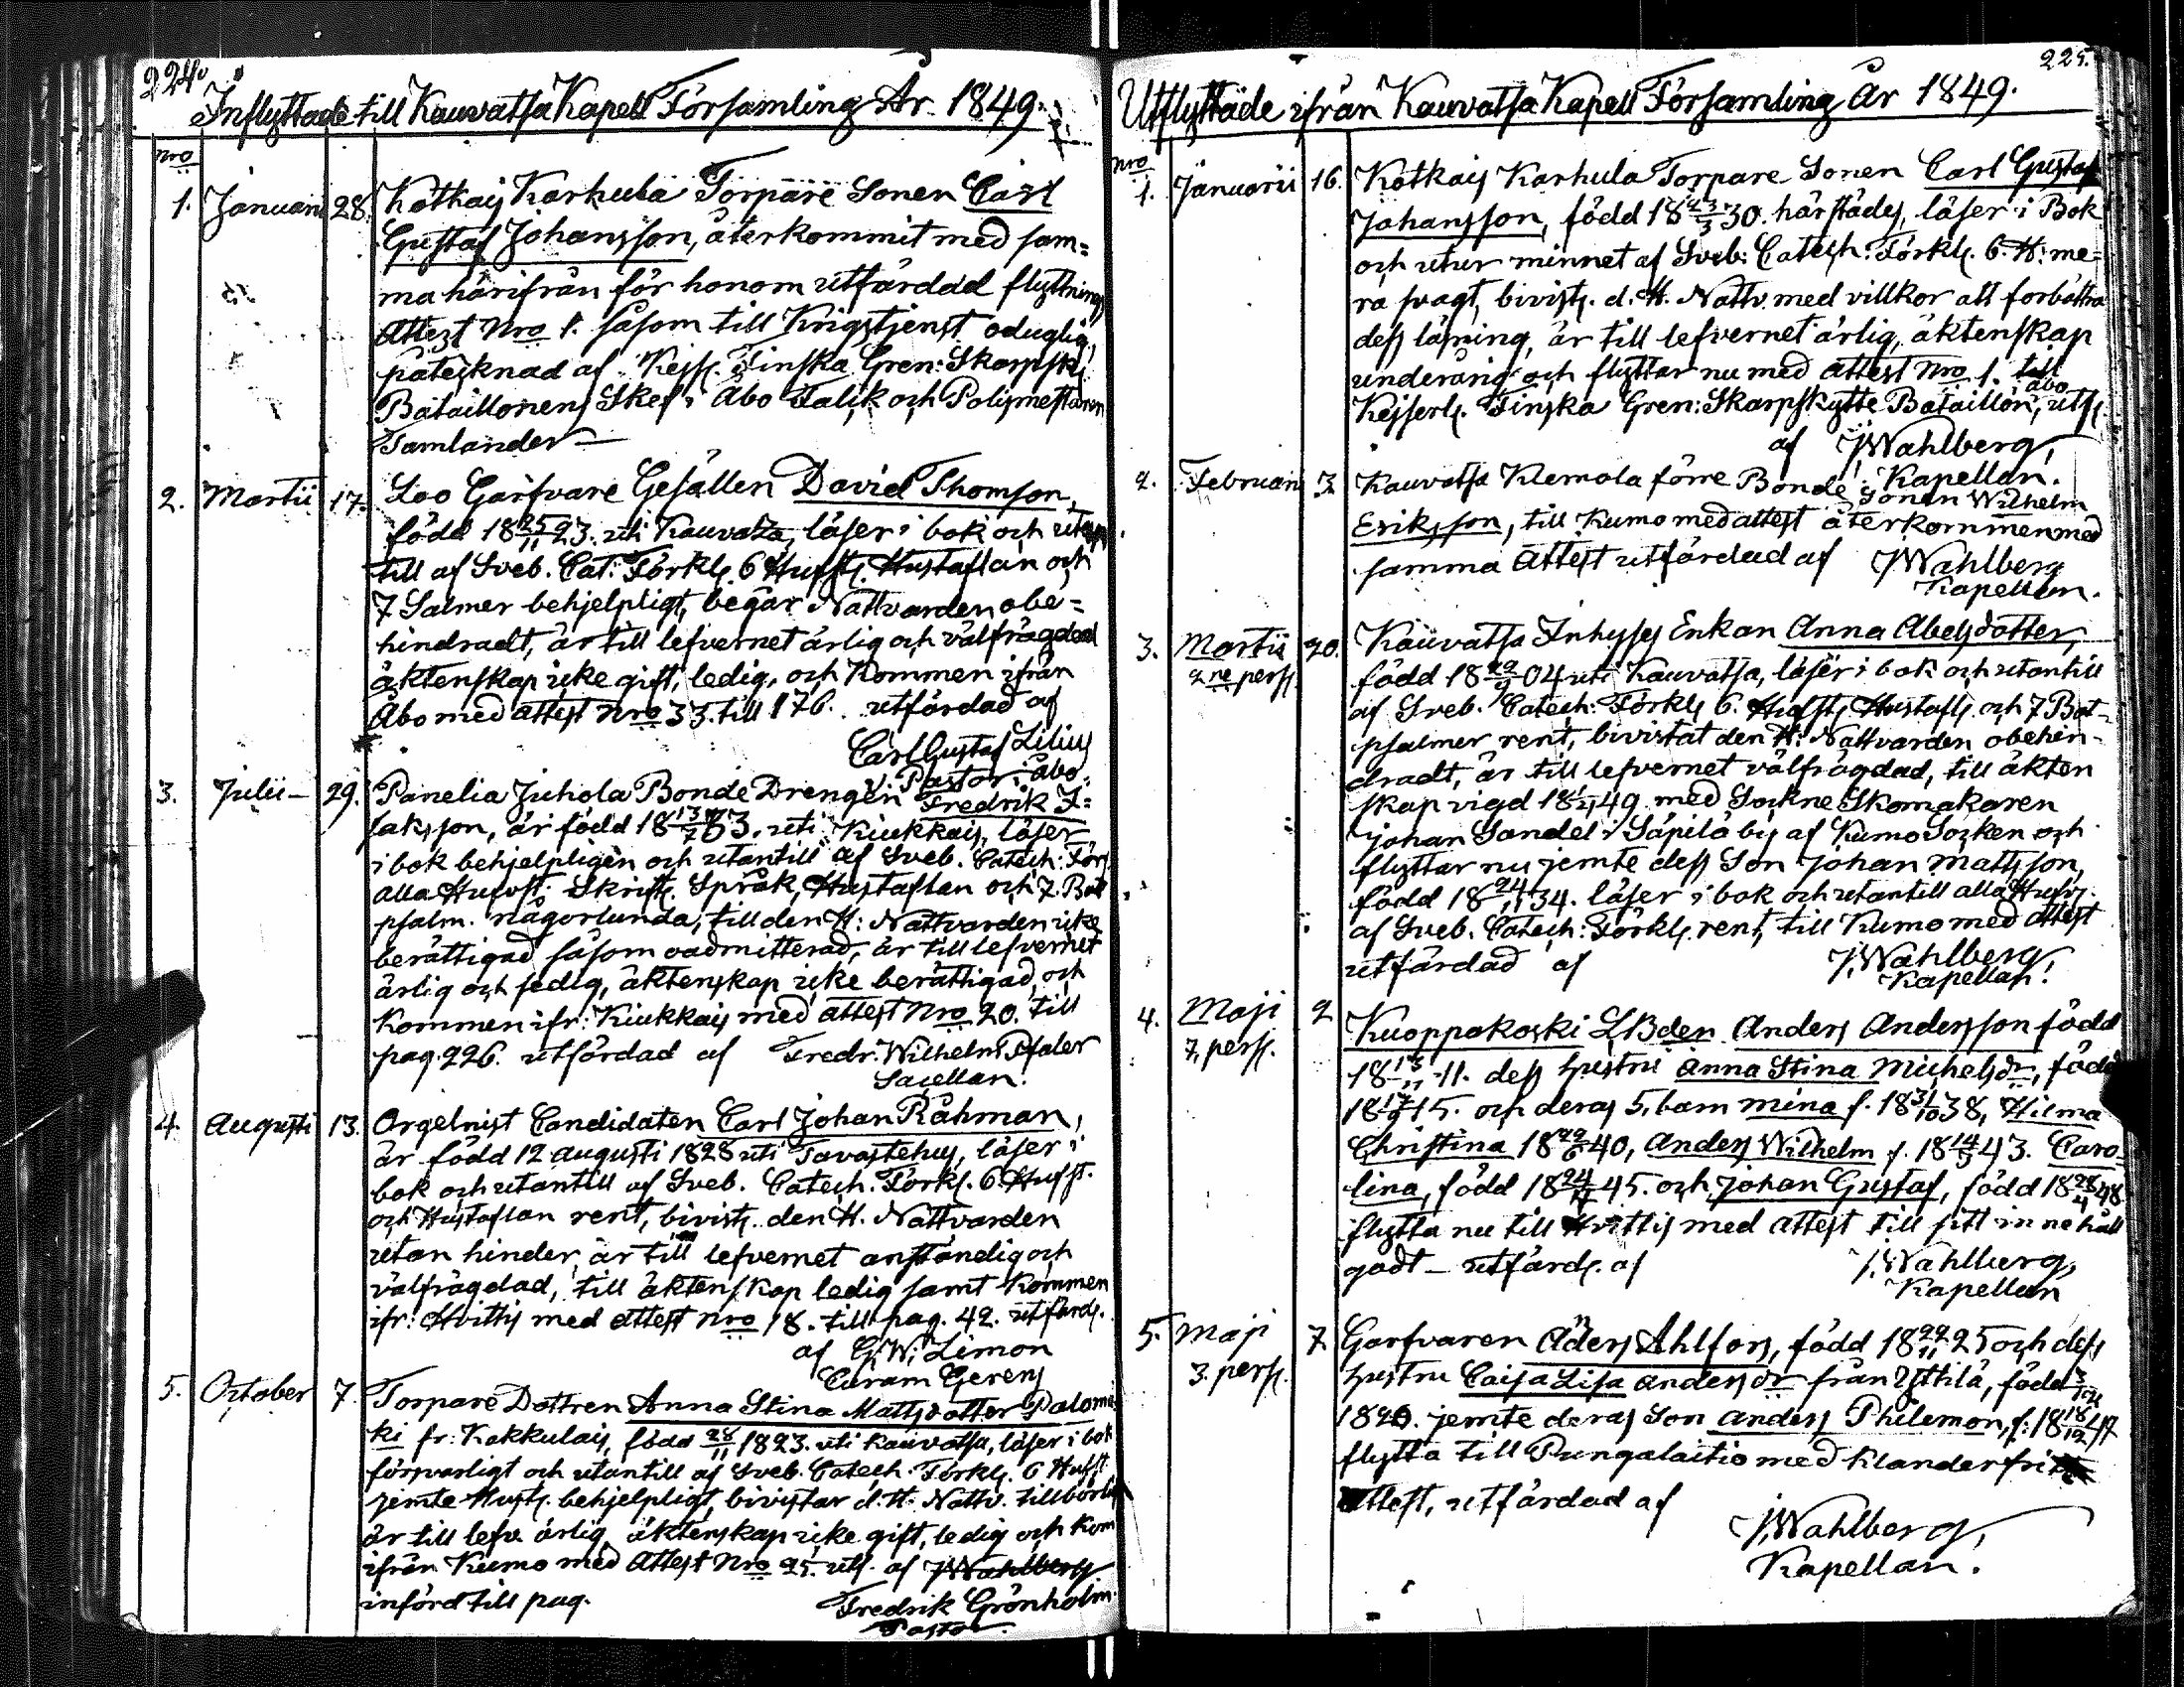 224.
Inflyttade till Kauvatsa Kapell Församling År 1849.
Nro
1. Januarii 28. Kotkais Karhula Torpare Sonen Carl
Gustaf Johansson, återkommit med sam=
ma härifrån för honom utfärdad flyttnings
Attest Nro 1. såsom till Krigstjenst oduglig,
påtecknad af Kejss. Finska Gren: Skarpsk.
Bataillonens Skef i Åbo Falck och Polismästaren
Tamlander —
2. Martii 17. Loo Garfvare Gesällen David Thomson,
född 18 25/11 23. uti Kauvatsa, läser i bok och utan
till af Sveb. Cat. Förkl. 6 Hufst. Hustaflan och
7 Salmer behjelpligt, begår Nattvarden obe=
hindradt, är till lefvernet ärlig och välfrägdad
äktenskap icke gift, ledig, och kommen ifrån
Åbo med attest Nro 33. till 176. utfärdad af
Carl Gustaf Lilius
v. Pastor i Åbo.
3. Julii — 29. Panelia Juhola Bonde Drengen Fredrik I=
saksson, är född 18 13/7 33. uti Kiukkais, läser
i bok behjelpligen och utantill af Sveb. Catech: För.
alla Hufvst. Skrift. Språk, Hustaflan och 7. Bot
psalm. någorlunda, till den H: Nattvarden icke
berättigad såsom oadmitterad, är till lefvernet
ärlig och fedig, äktenskap icke berättigad, och
kommen ifr: Kiukkais med attest Nro 20. till
pag. 226. utfärdad af Fredr: Wilhelm Pfaler
Sacellan.
4. Augusti 13. Orgelnist Candidaten Carl Johan Råhman,
är född 12 augusti 1828 uti Tavastehus, läser i
bok och utantill af Sveb. Catech. Förkl. 6. Hufst.
och Hustaflan rent, bivist. den H. Nattvarden
utan hinder, är till lefvernet anständig och
välfrägdad, till äktenskap ledig samt kommen
ifr: Hvittis med attest Nro 18. till pag. 42. utfärd.
af G. W. Limon
Curam Gerens
5. October 7. Torpare Dottren Anna Stina Mattsdotter Palomä
ki fr: Kakkulais, född 28/11 1823. uti Kauvatsa, läser i bok
försvarligt och utantill af Sveb. Catech. Förkl. 6 Hufst
jemte Hust. behjelpligt, bivistar d. H. Nattv. tillbörlig
är till lefv. ärlig, äktenskap icke gift, ledig och kom
ifrån Kumo med Attest Nro 25. utf. af JWahlberg
införd till pag.
Fredrik Grönholm
Pastor
225.
Utflyttade ifrån Kauvatsa Kapell Församling År 1849.
Nro
1. Januarii 16. Kotkais Karhula Torpare Sonen Carl Gustaf
Johansson, född 18 /3 30. härstädes, läser i Bok
och utur minnet af Sveb: Catech. Förkl. 6. H: me=
ra svagt, bivist. d. H. Nattv. med villkor att förbättra
dess läsning, är till lefvernet ärlig, äktenskap
underårig och flyttar nu med attest Nro 1. till
Kejserl. Finska Gren: Skarpskytte Bataillon, Åbo utf.
af J. Wahlberg,
Kapellan.
2. Februarii 3 Kauvatsa Klemola förre Bonde Sonen Wilhelm
Eriksson, till Kumo med attest återkommen med
samma Attest utfärdad af JWahlberg
Kapellan.
3. Martii 20. Kauvatsa Inhyses Enkan Anna Abelsdotter,
2ne perss. född 18 29/9 04 uti Kauvatsa, läser i bok och utantill
af Sveb. Catech: Förkl. 6. Hufst. Hustafl. och 7 Bot=
psalmer rent, bivistat den H: Nattvarden obehin-
dradt, är till lefvernet välfrägdad, till äkten
skap vigd 18 49 med Sockne Skomakaren
Johan Sandel i Säpilä by af Kumo Socken och
flyttar nu jemte dess Son Johan Mattsson,
född 18 24/11 34. läser i bok och utantill alla Hufv.
af Sveb. Catech: Förkl. rent, till Kumo med attest
utfärdad af J. Wahlberg
Kapellan.
4. Maji 2 Kuoppakoski LBden Anders Andersson född
7. perss. 18 13/11 11. dess hustru Anna Stina Michelsdr, född
18 17/9 15. och deras 5. barn Mina f. 18 31/10 38, Hilma
Christina 18 40, Anders Wilhelm f. 18 14/9 43. Caro-
lina, född 18 45. och Johan Gustaf, född 18 28/4 48
flytta nu till Hvittis med attest till sitt innehåll
godt — utfärd. af J. Wahlberg,
Kapellan
5. Maji 7 Garfvaren Anders Ahlfors, född 18 22/11 25 och dess
3. perss. hustru Caisa Lisa Andersdr från Yttilä, född
1826. jemte deras Son Anders Philemon, f: 18 18/12 47
flytta till Pungalaitio med klanderfri
Attest, utfärdad af
J. Wahlberg,
Kapellan.